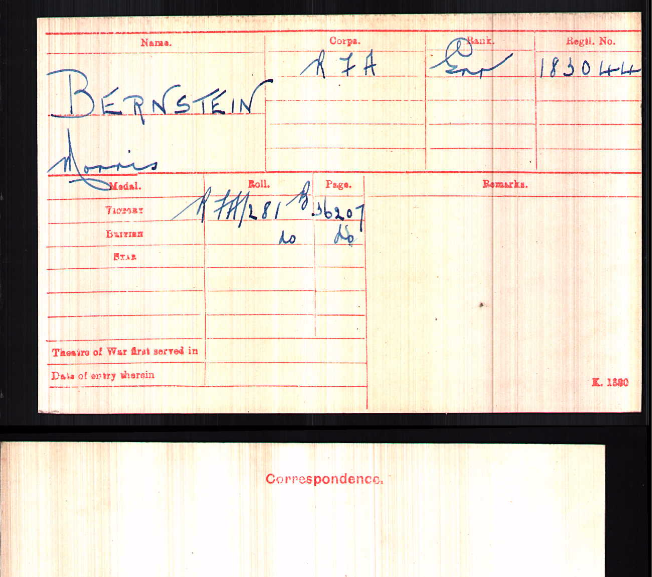 Name. Corps. Rank. Regtl. No.
BERNSTEIN R F A Gnr 183044
Morris
Medal. Roll. Page. Remarks.
VICTORY R FA/281 B 36207
BRITISH do do
STAR
Theatre of War first served in
Date of entry therein
K. 1380
Correspondence.